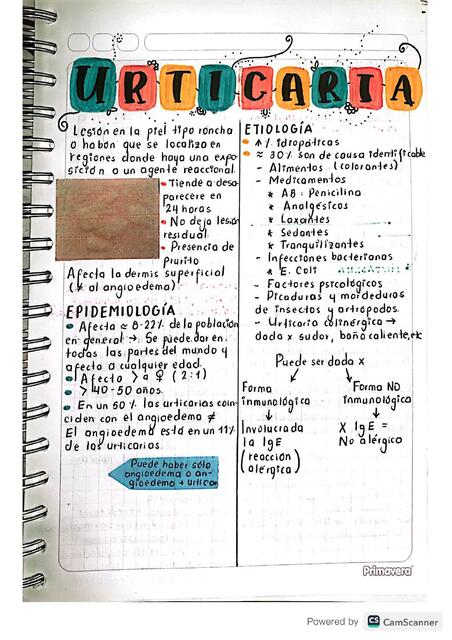 URTICARIA
Lesión en la piel tipo roncha
o habón que se localiza en
regiones donde haya una expo-
sición a un agente reaccional.
• Tiende a desa
parecere en
24 horas
• No deja lesión
residual.
• Presencia de
Prurito
Afecta la dermis superficial
(≠ al angioedema)
EPIDEMIOLOGÍA
• Afecta ≈ 8-22% de la población
en general → Se puede dar en
todas las partes del mundo y
afecta a cualquier edad.
• Afecta > a ♀ (2:1)
• > 40-50 años.
• En un 50% las urticarias coin-
ciden con el angioedema ≠
El angioedema está en un 11%
de las urticarias.
Puede haber sólo
angioedema o an-
gioedema + urticar
ETIOLOGÍA
• ↑% idiopáticas
• ≈ 30% son de causa identificable
- Alimentos (colorantes)
- Medicamentos
* AB: Penicilina
* Analgésicos
* Laxantes
* Sedantes
* Tranquilizantes
- Infecciones bacterianas
* E. Coli
- Factores psicológicos
- Picaduras y mordeduras
de insectos y artropodos.
- Urticaria colinérgica →
dada x sudor, baño caliente, etc
Puede ser dada x
Forma
inmunológica
Involucrada
la IgE
(reacción
alérgica)
Forma NO
inmunológica
X IgE =
No alérgico
Primavera
Powered by CS CamScanner